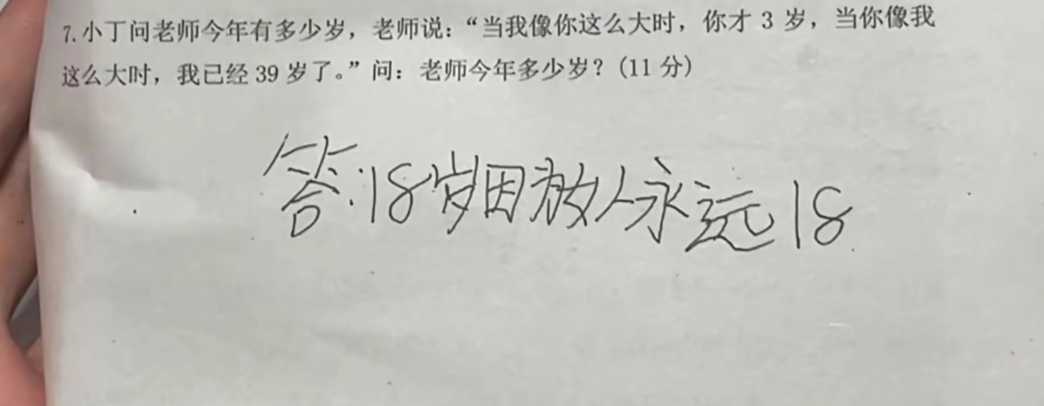 7.小丁问老师今年有多少岁，老师说：“当我像你这么大时，你才 3 岁，当你像我
这么大时，我已经 39 岁了。”问：老师今年多少岁？(11 分)
答:18岁因为女人永远18